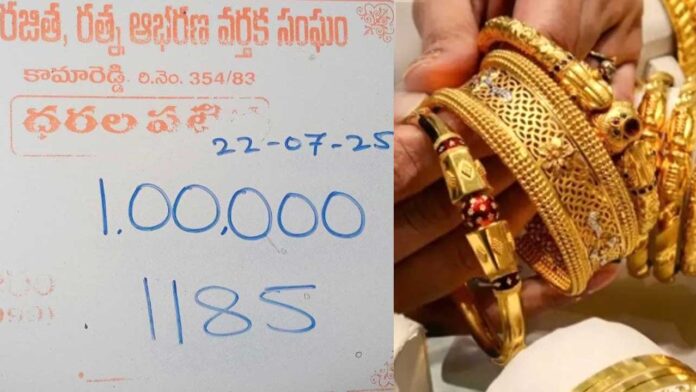 రజిత, రత్న ఆభరణ వర్తక సంఘం
కామారెడ్డి రి.నెం. 354/83
ధరల
22-07-25
1.00,000
1185